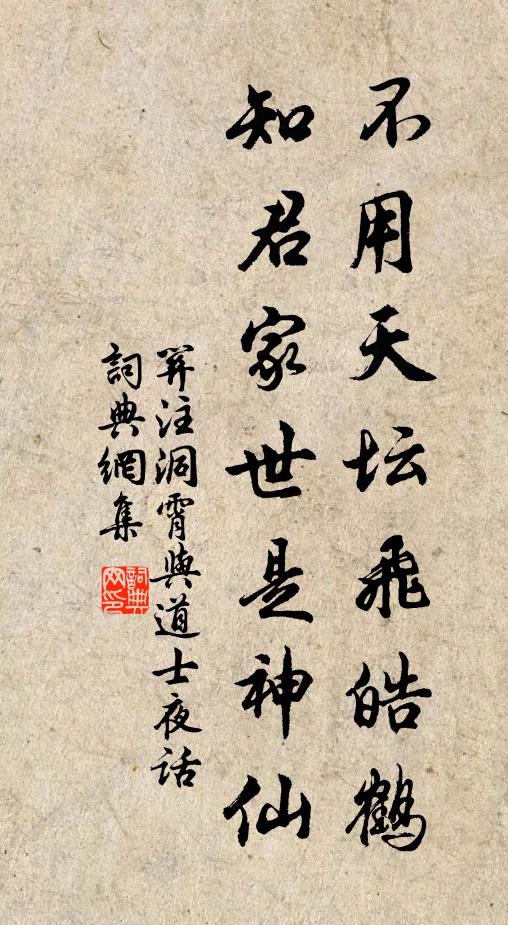 不用天坛飛皓鶴
知君家世是神仙
羿注洞霄與道士夜话
詞典網集
詞典